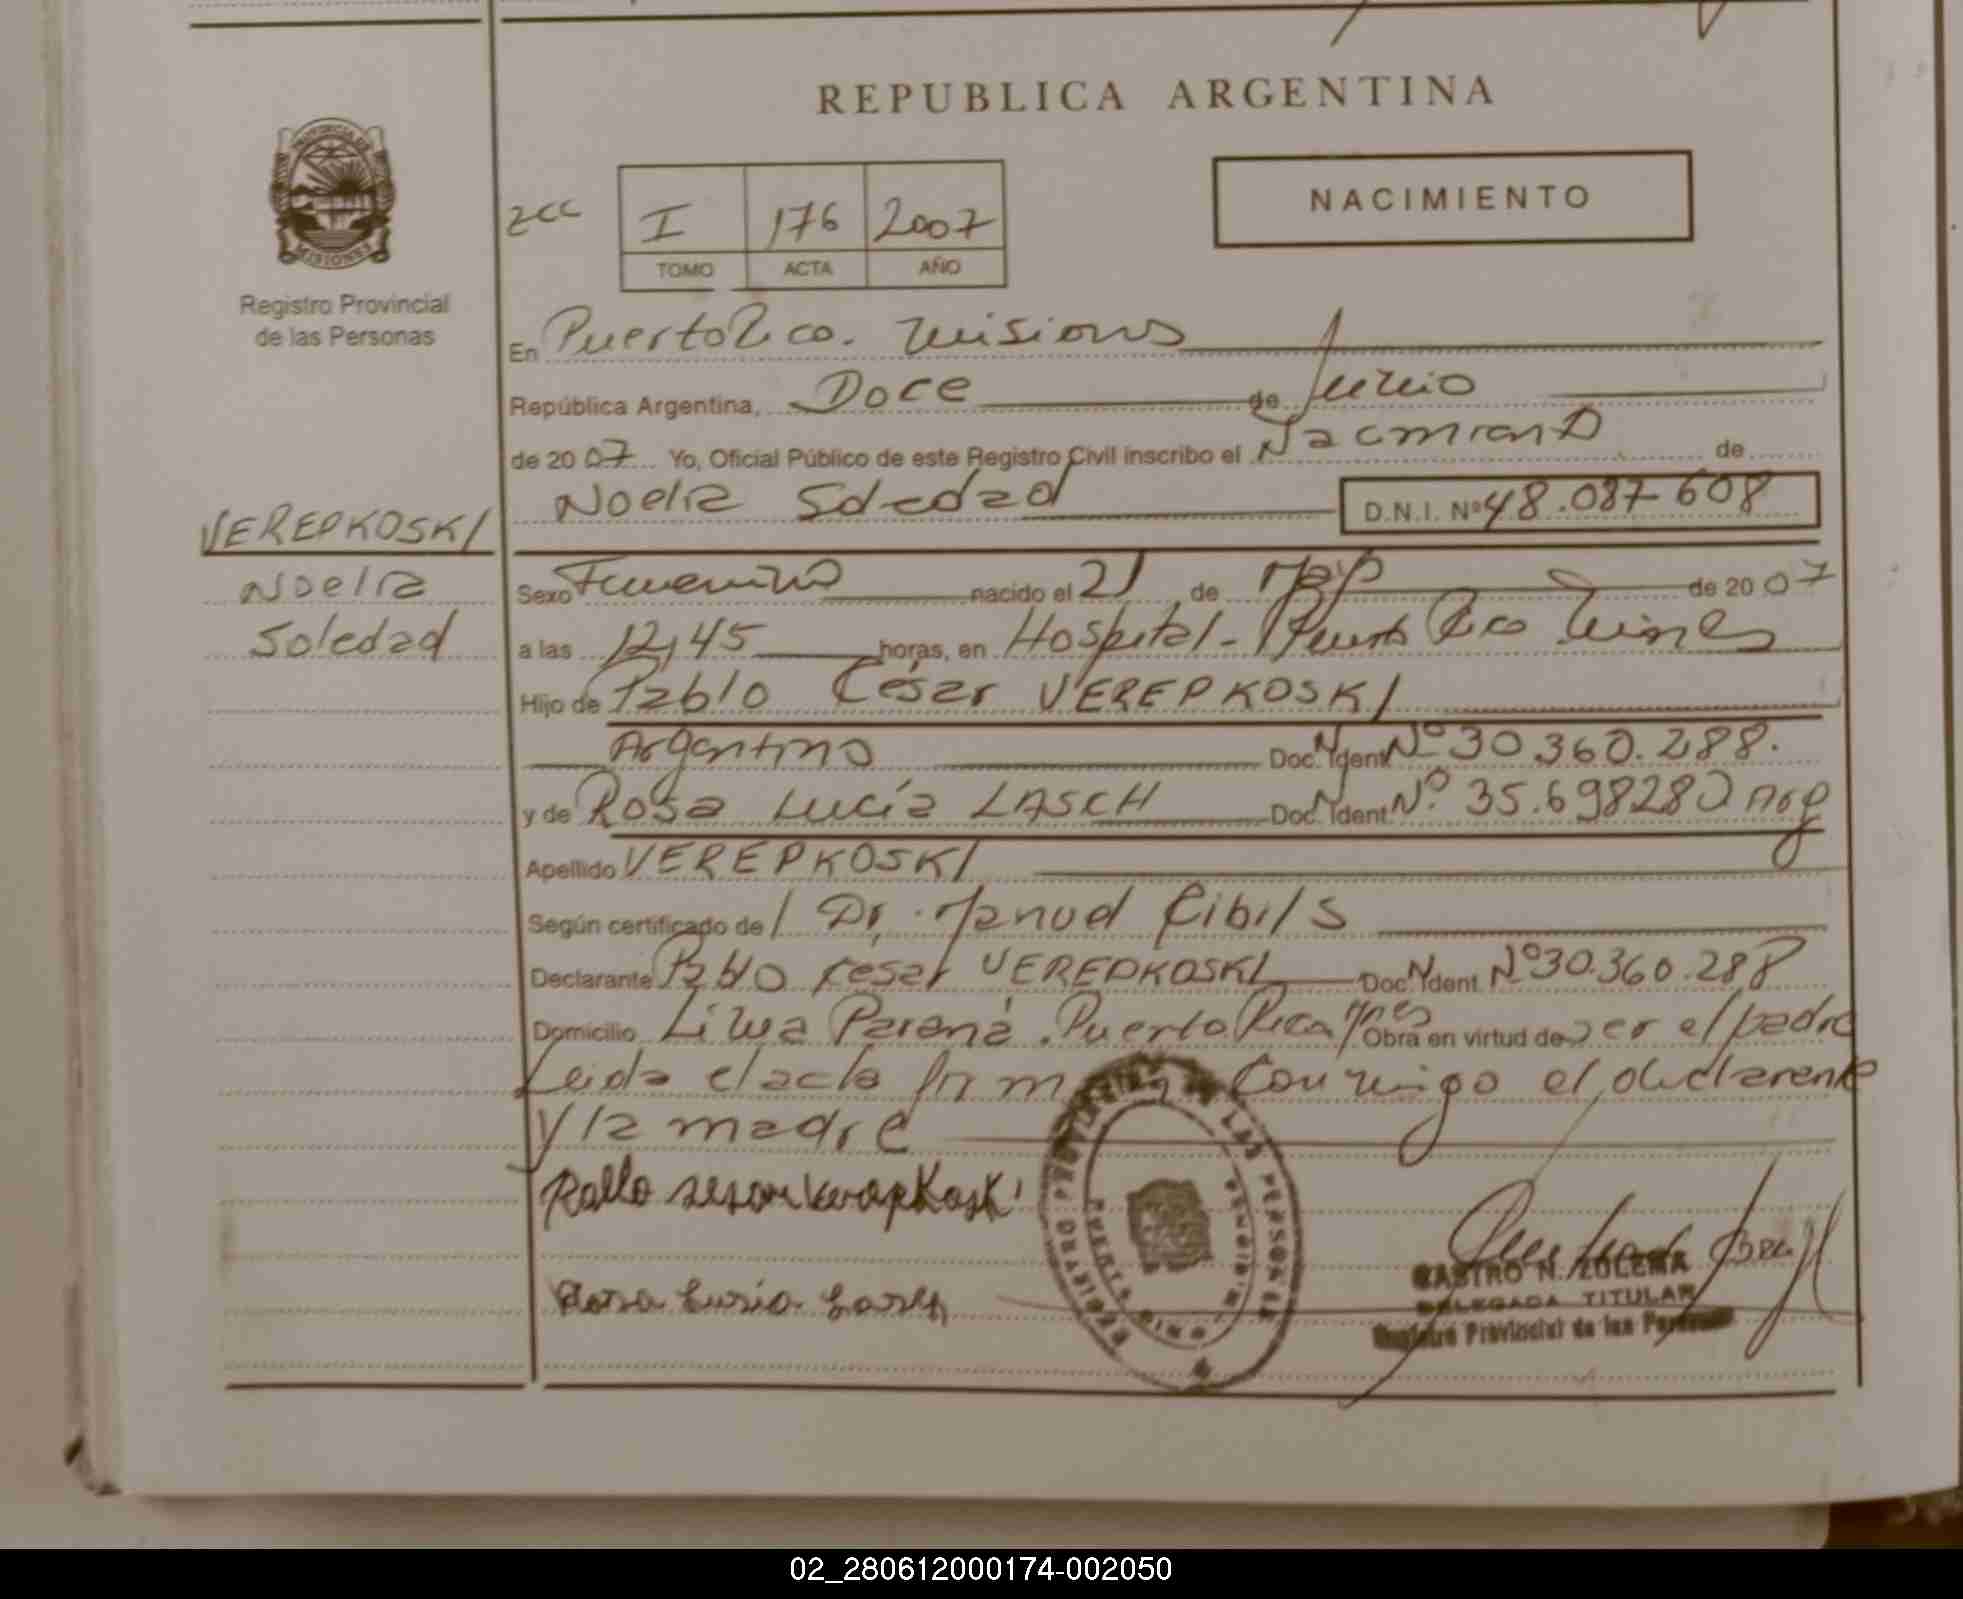 REPUBLICA ARGENTINA
PROVINCIA DE
MISIONES
Registro Provincial
de las Personas
2cc
I 176 2007
TOMO ACTA AÑO
NACIMIENTO
En Puerto Rico. Misiones
República Argentina, Doce de Junio
de 2007 Yo, Oficial Público de este Registro Civil inscribo el Nacimiento de
Noelia Soledad D.N.I. Nº 48.087-608
VEREPKOSKI
Noelia
Soledad
Sexo Femenino nacido el 21 de Mayo de 2007
a las 12,45 horas, en Hospital - Puerto Rico Misiones
Hijo de Pablo César VEREPKOSKI
Argentino Doc. N. Ident. Nº 30.360.288.
y de Rosa Lucía LASCH Doc. N. Ident. Nº 35.698280 Arg
Apellido VEREPKOSKI
Según certificado de Dr. Manuel Cibils
Declarante Pablo Cesar VEREPKOSKI Doc. N. Ident. Nº 30.360.288
Domicilio Paraná. Puerto Rico Mnes Obra en virtud de ser el padre
Leida el acta firman Conmigo el declarante
y la madre
Rosa Lucia Lasch
REGISTRO PROVINCIAL DE LAS PERSONAS
PUERTO RICO MISIONES
CASTRO N. ZULEMA
DELEGADA TITULAR
Registro Provincial de las Personas
02_280612000174-002050